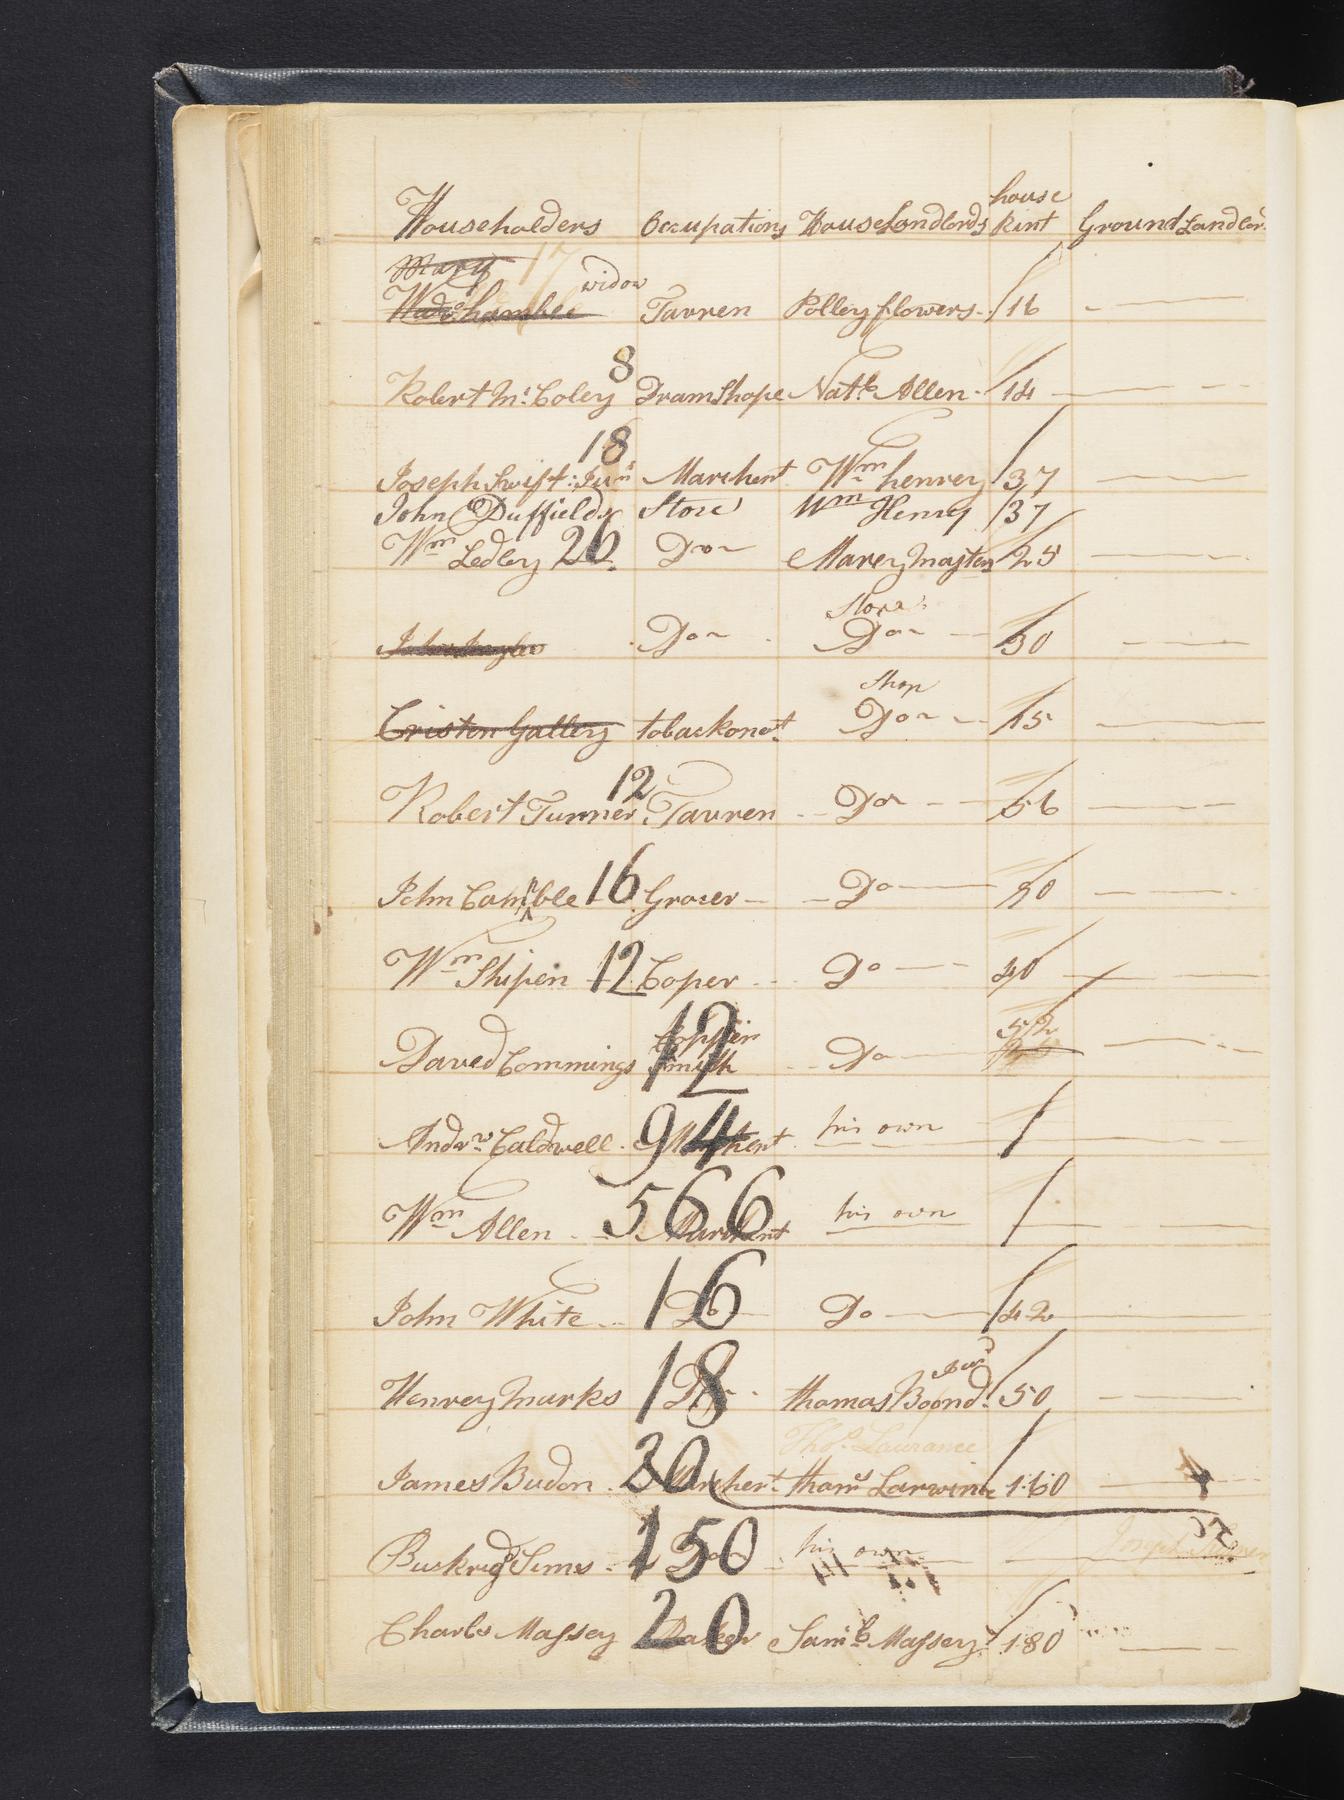 Householders Occupations House Landlords house Rent Ground Landlor
Mary 17
Wido Chamblee widow Tavren Polley flowers 16
Robert Mc: Coley 8 Dramshope Natll Allen 14
Joseph Swift: Junr 18 Marchent Wm henrey 37
John Duffield Store Wm Henry 37
Wm Ledley 26 Don Marey Masters 25
Don Store Don 30
Criston Galley tobackonest Shop Don 15
Robert Turner 12 Tavren Don 56
John Campble 16 Grocer Do 50
Wm Shipen 12 Coper Do 40
Daved Commings 12 Copper Smith Do 52
Andrw Caldwell 94 Marchent his own
Wm Allen 566 Marchent his own
John White 16 Do Do 42
Henrey Marks 18 Do thomas Boond Jur 50
Thos. Laurance
James Budon 30 Marchent thoms Larwince 160 4
Buskred Sims 150 Don his own Joseph
Charls Massey 20 Baker Samll Massey 180